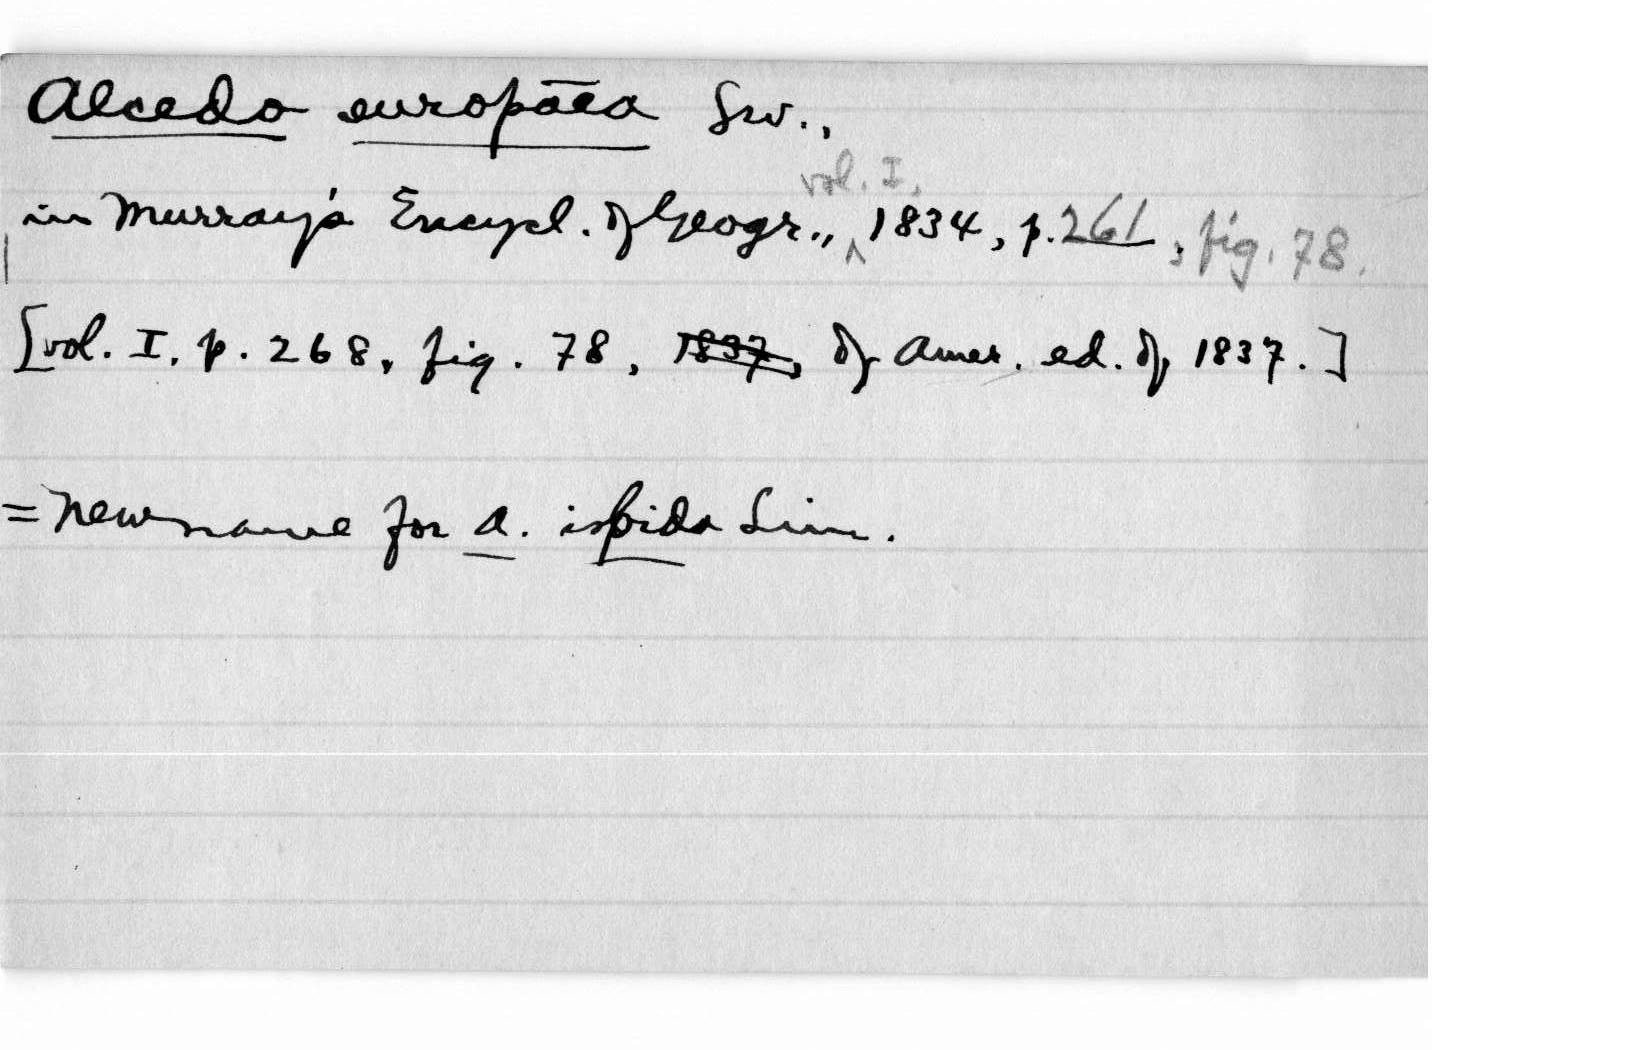 Alcedo europāea Sw.,
in Murray's Encycl. of Geogr., vol. I, 1834, p. 261, fig. 78.
[vol. I, p. 268, fig. 78, 1837, of Amer. ed. of 1837.]
= New name for A. ispida Linn.